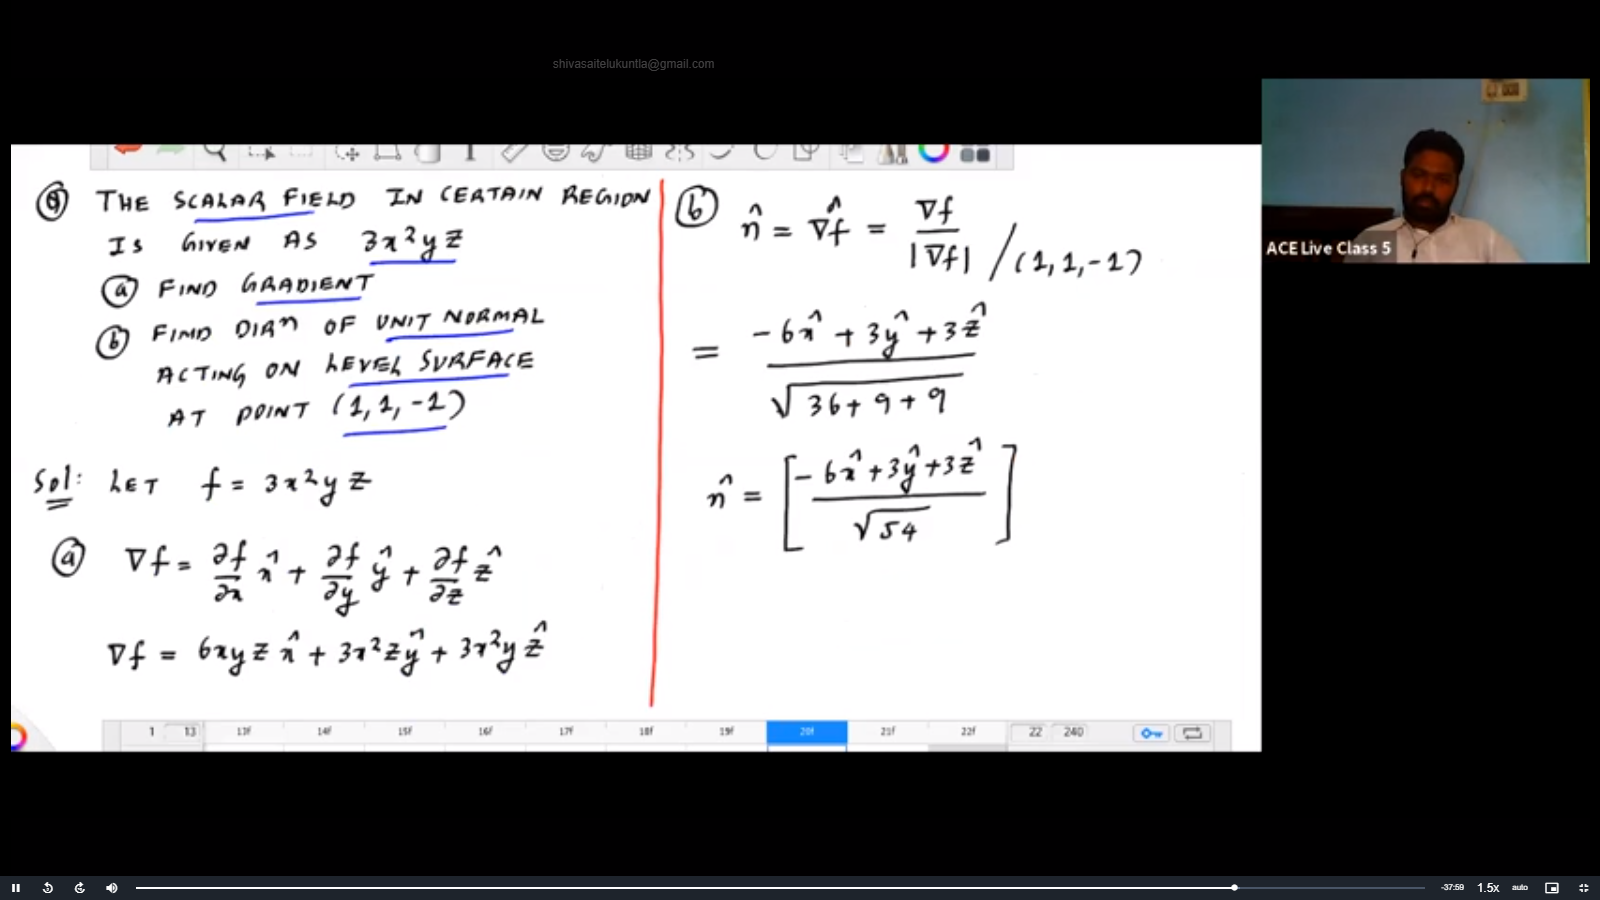 shivasaitelukuntla@gmail.com
Q THE SCALAR FIELD IN CERTAIN REGION
IS GIVEN AS 3x²yz
(a) FIND GRADIENT
(b) FIND DIRⁿ OF UNIT NORMAL
ACTING ON LEVEL SURFACE
AT POINT (1,1,-1)
Sol: LET f = 3x²yz
(a) ∇f = ∂f/∂x x̂ + ∂f/∂y ŷ + ∂f/∂z ẑ
∇f = 6xyz x̂ + 3x²z ŷ + 3x²y ẑ
(b) n̂ = ∇̂f = ∇f / |∇f| / (1,1,-1)
= -6x̂ + 3ŷ + 3ẑ / √36+9+9
n̂ = [-6x̂+3ŷ+3ẑ / √54]
ACE Live Class 5
1 13 13f 14f 15f 16f 17f 18f 19f 20f 21f 22f 22 240
-37:59 1.5x auto